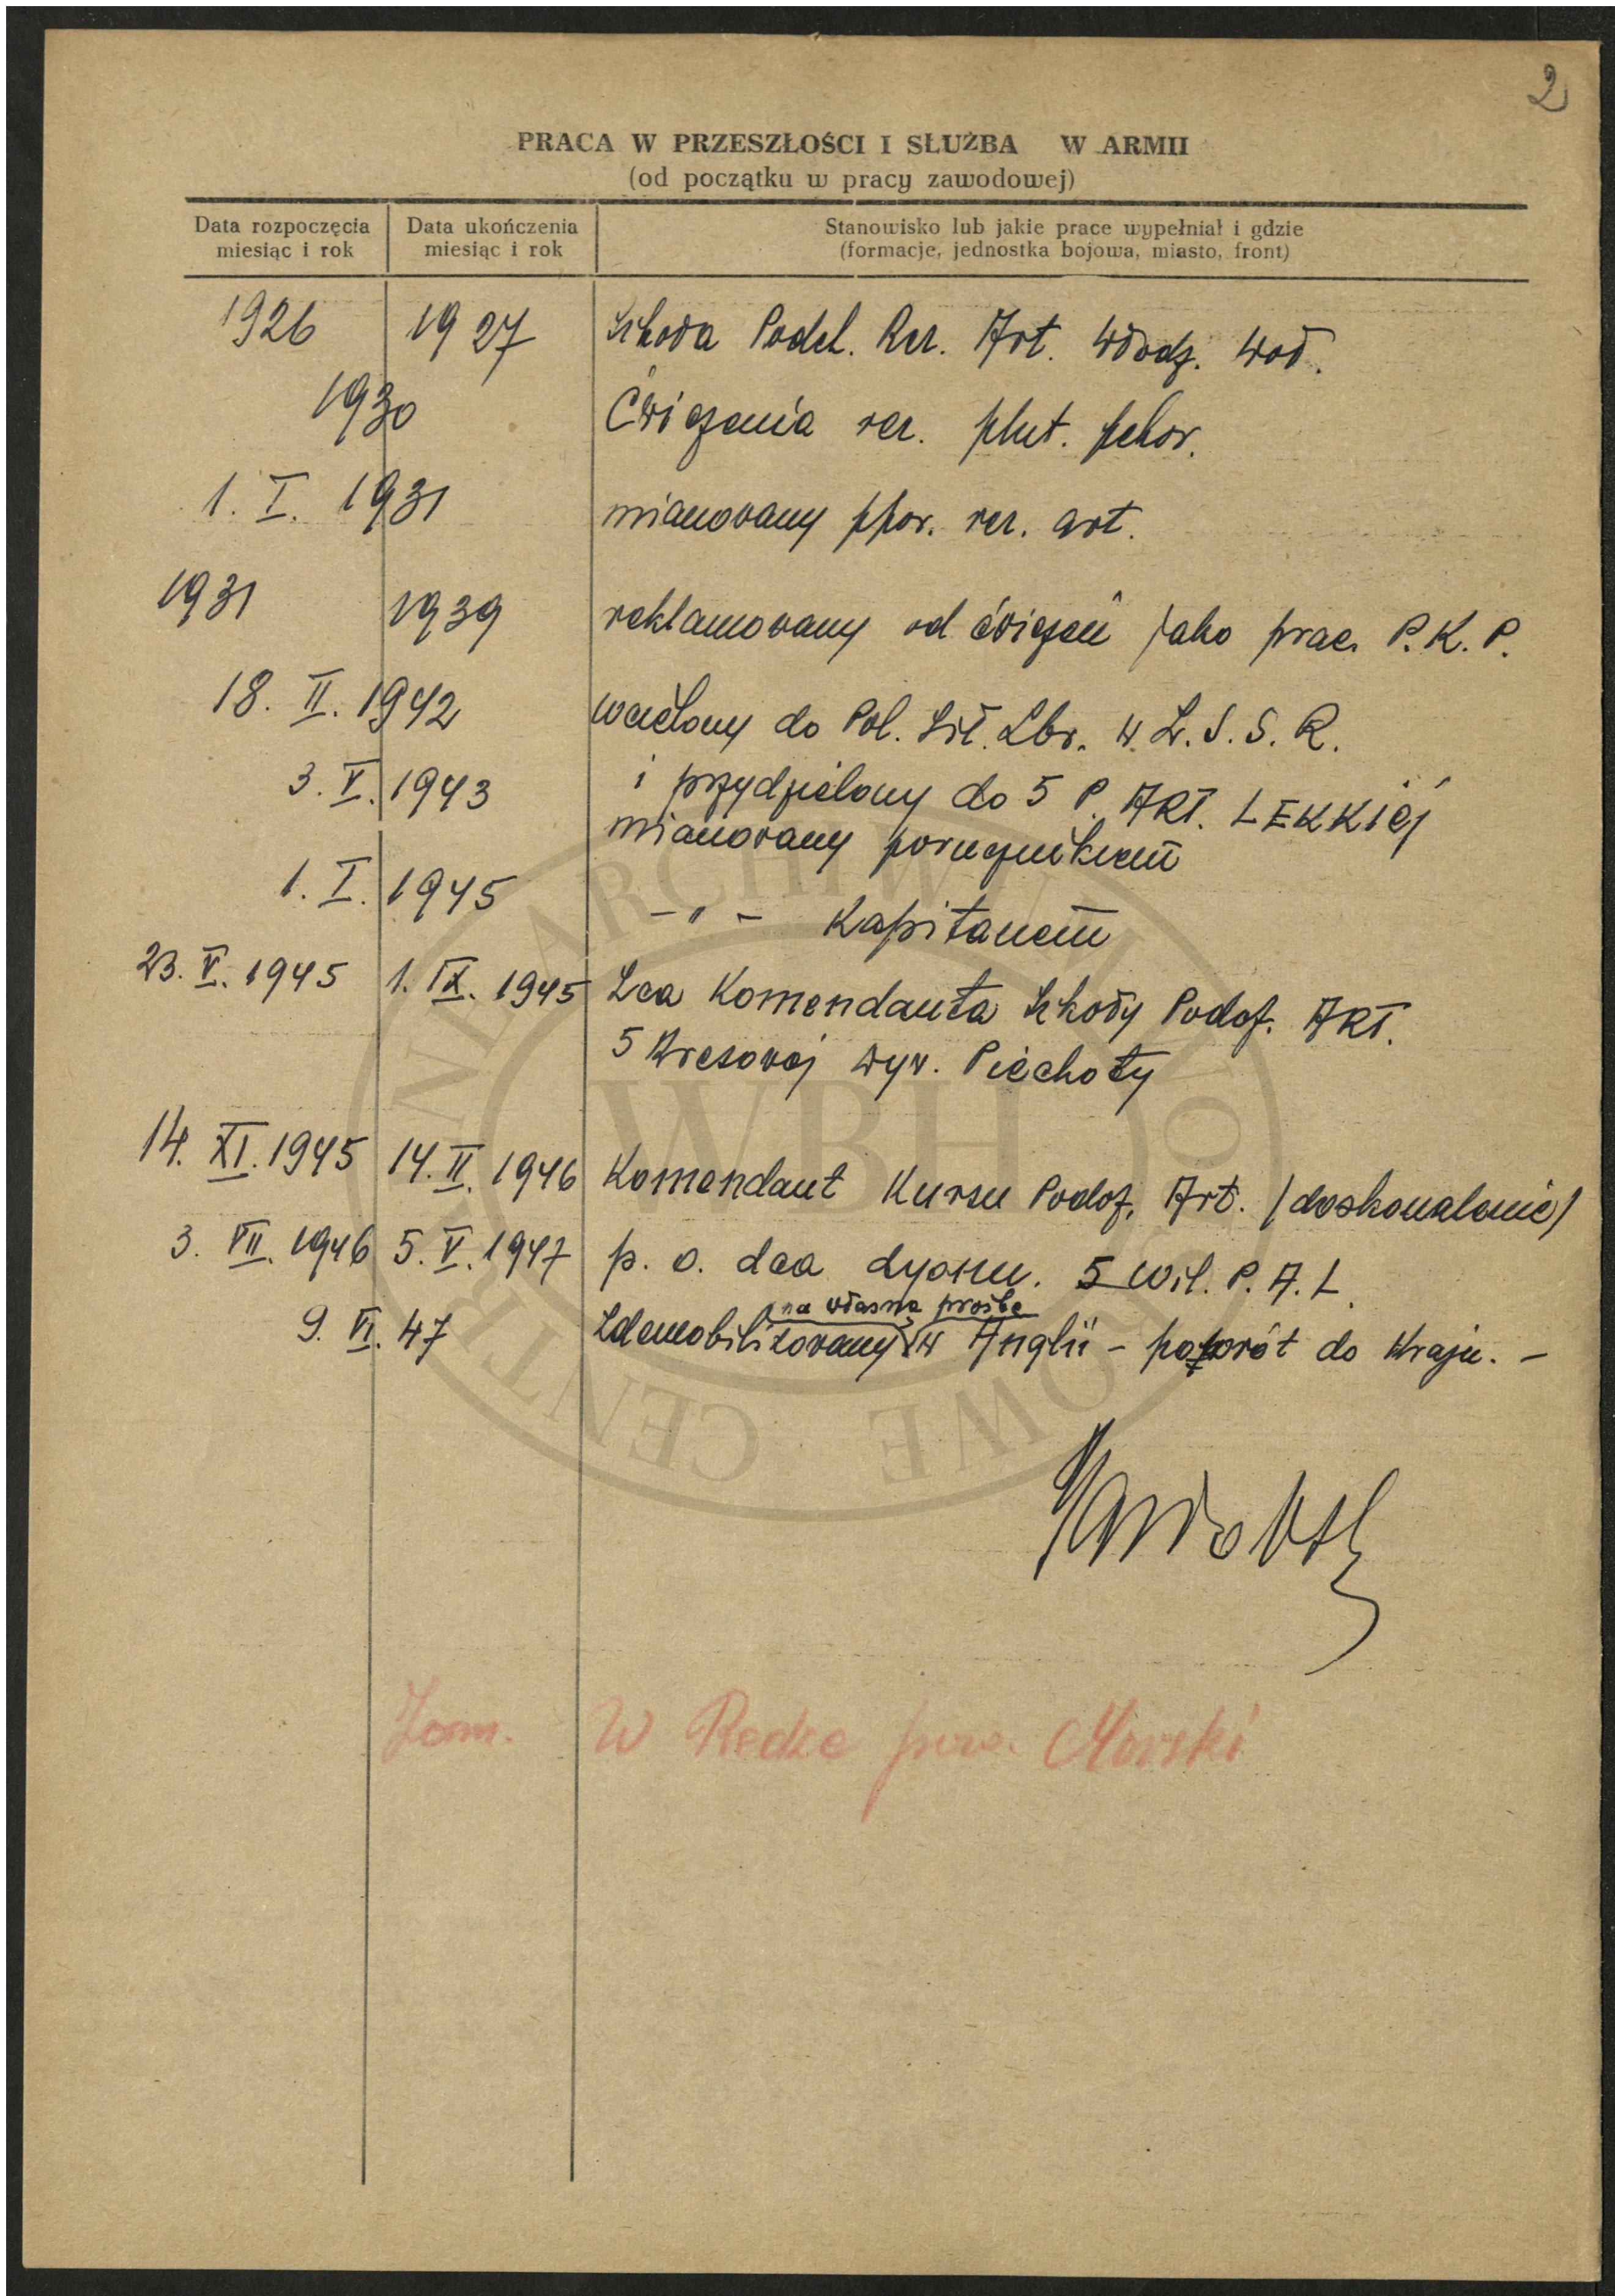 2
PRACA W PRZESZŁOŚCI I SŁUŻBA W ARMII
(od początku w pracy zawodowej)
Data rozpoczęcia miesiąc i rok
Data ukończenia miesiąc i rok
Stanowisko lub jakie prace wypełniał i gdzie
(formacje, jednostka bojowa, miasto, front)
1926 1927 Szkoła Podch. Rez. Art. Włodz. Woł.
1930 Ćwiczenia rez. plut. pchor.
1. I. 1931 mianowany ppor. rez. art.
1931 1939 reklamowany od ćwiczeń jako prac. P.K.P.
18. II. 1942 wcielony do Pol. Sił. Zbr. w Z.S.S.R.
i przydzielony do 5 P. ART. LEKKIEJ
3. V. 1943 mianowany porucznikiem
1. I. 1945 -"- Kapitanem
23. V. 1945 1. IX. 1945 Zca Komendanta Szkoły Podof. ART.
5 Kresowej Dyw. Piechoty
14. XI. 1945 14. II. 1946 Komendant Kursu Podof. Art. /doskonalenie/
3. VII. 1946 5. V. 1947 p. o. dca dyonu. 5 Wil. P.A.L.
na własną prośbę
9. VI. 47 Zdemobilizowany w Anglii - powrót do Kraju. -
Zam. W Redce pow. Morski
CENTRALNE ARCHIWUM WOJSKOWE
WBH